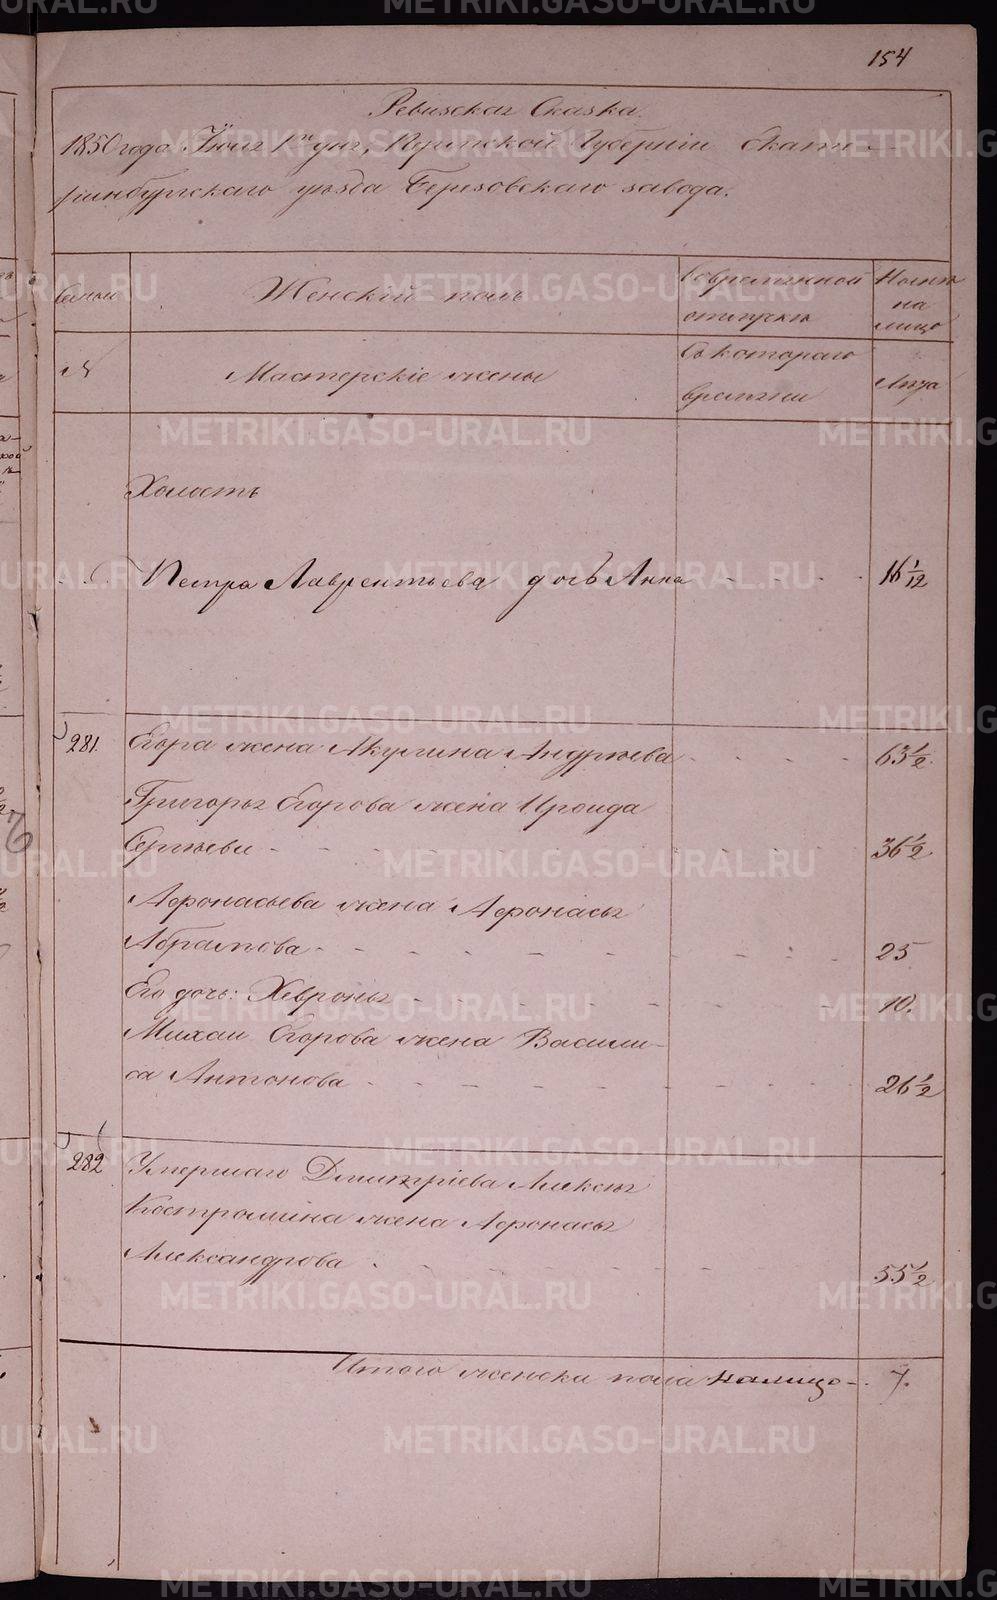 154
Ревизская Сказка.
1850 года Июня 1го дня, Пермской Губернiи Екате-
ринбургскаго уѣзда Березовскаго завода.
Семьи
Женскiй полъ
Во временной
отлучкѣ
Нынѣ
на
лицо
№
Мастерскiе жены
Съ котораго
времени
Лѣта
Холостъ
Петра Лаврентьева дочь Анна
16 1/12
281.
Егора жена Акулина Андреева
63 1/2
Григорья Егорова жена Ироида
Сергѣева
36 1/2
Афонасьева жена Афонасья
Абрамова
25
Его дочь: Хеврônья
10.
Михаи Егорова жена Васили-
са Антонова
26 1/2
282
Умершаго Дмитрiева Алексѣя
Костромина жена Афонасья
Александрова
55 1/2
Итого женска пола налицо
7.
METRIKI.GASO-URAL.RU